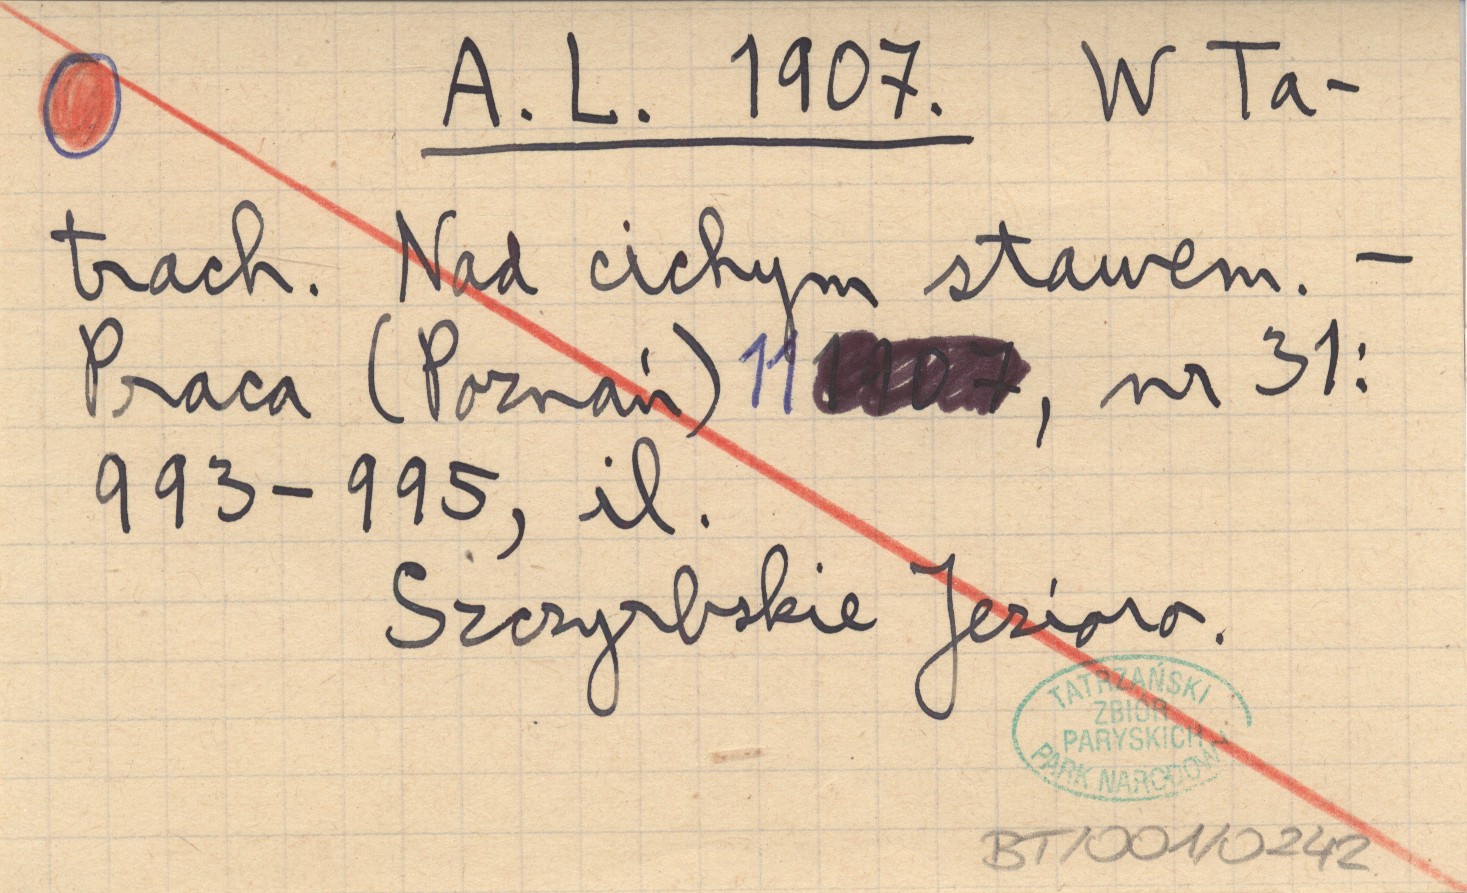 A. L. 1907. W Ta-
trach. Nad cichym stawem. –
Praca (Poznań) 11 1907, nr 31:
993–995, il.
Szczyrbskie Jezioro.
TATRZAŃSKI
ZBIÓR
PARYSKICH
PARK NARODOWY
BT/001/0242